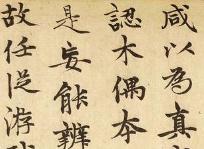 咸以為真
認木偶夲
是妄能辨
故任從游